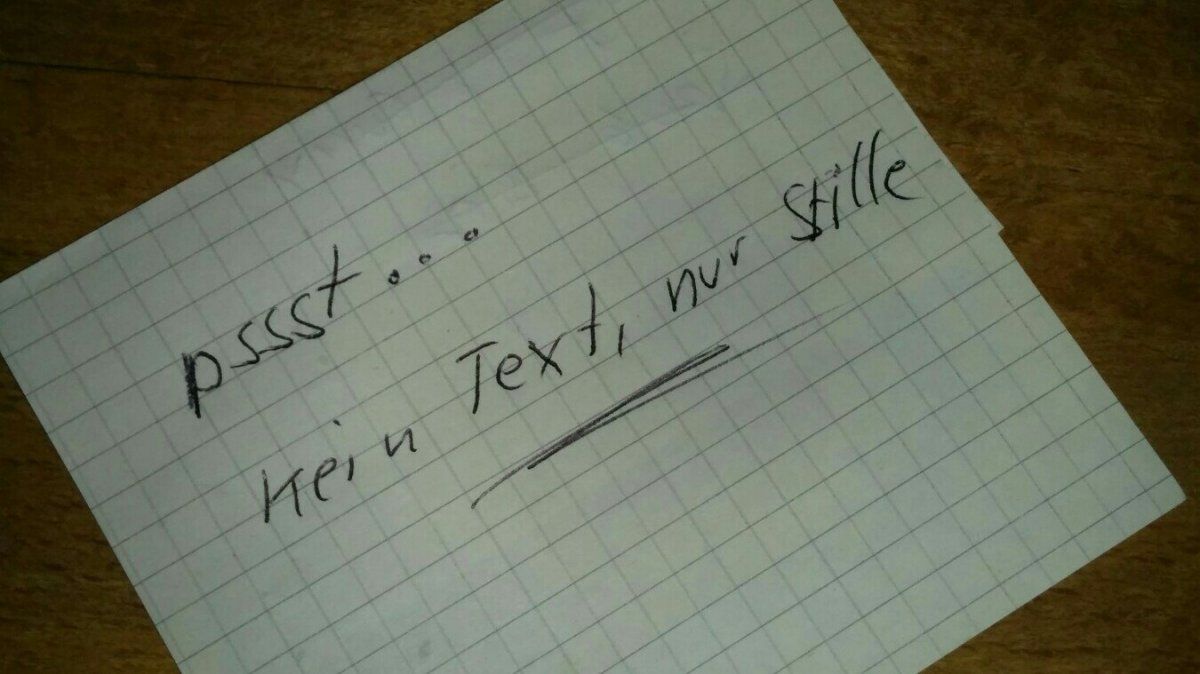 pssst...
Kein Text, nur Stille